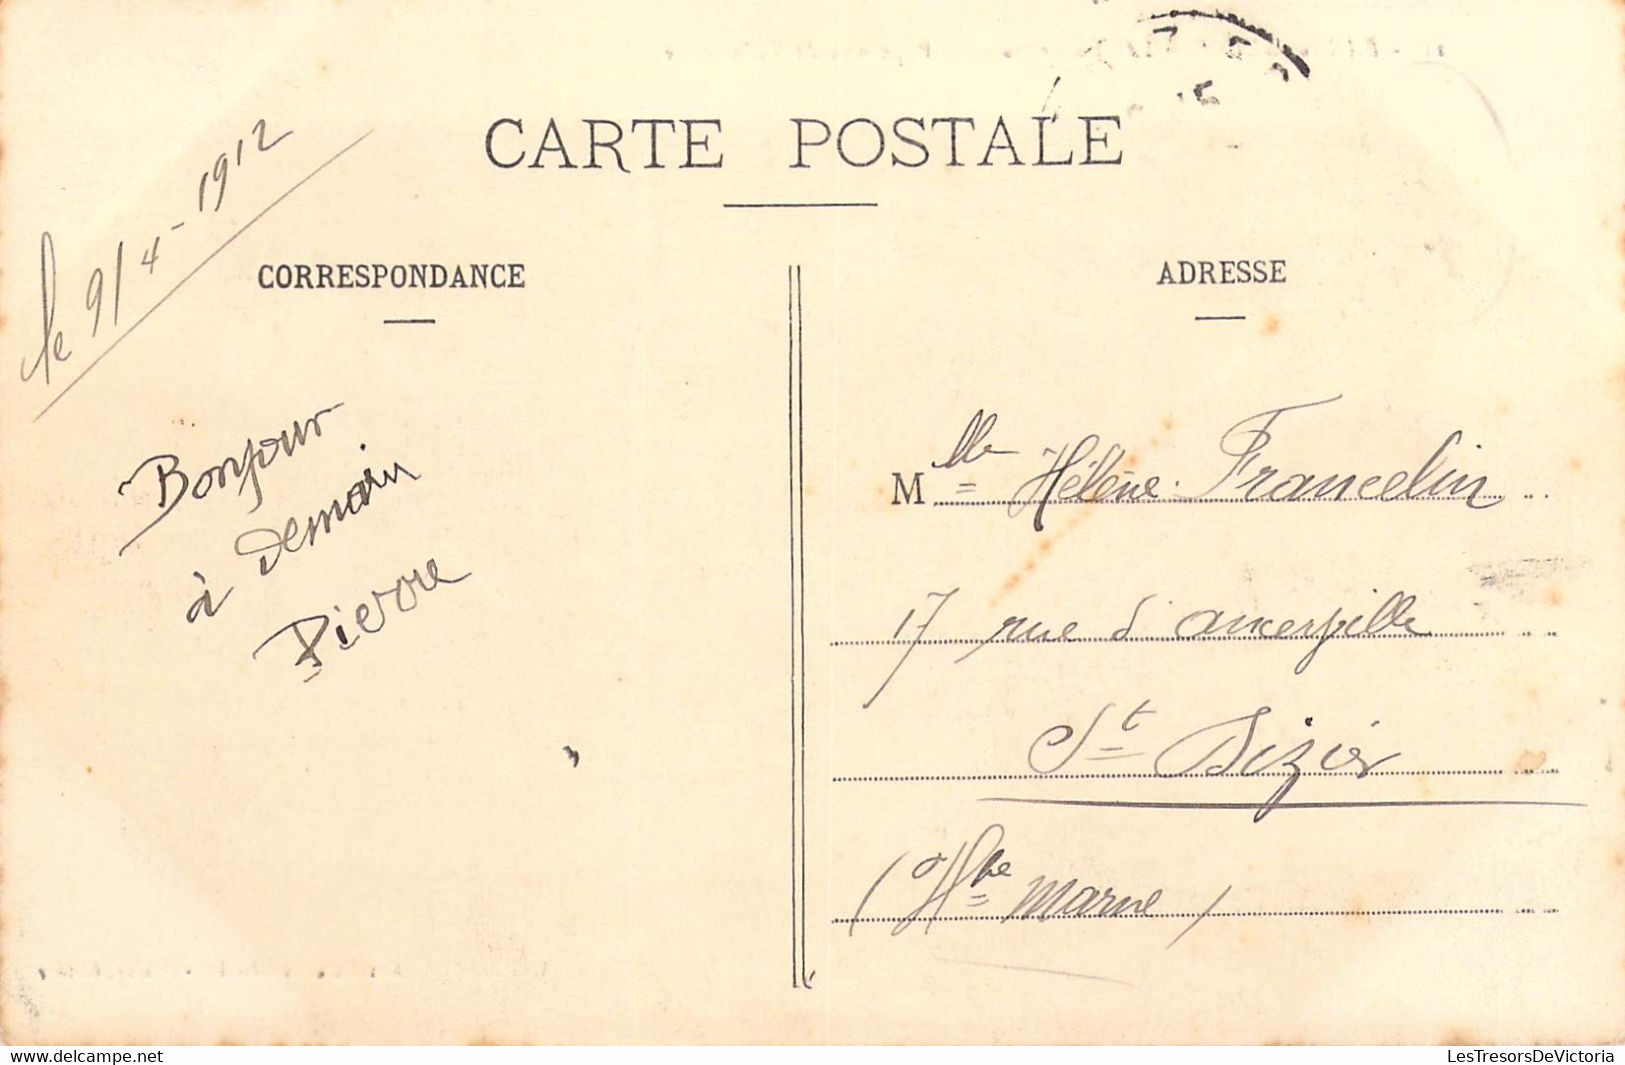 CARTE POSTALE
le 9/4-1912
CORRESPONDANCE
Bonjour
à demain
Pierre
ADRESSE
Mlle Hélène Francelin
17 rue d'ancerville
St Dizier
(Hte Marne)
delcampe.net
LesTresorsDeVictoria